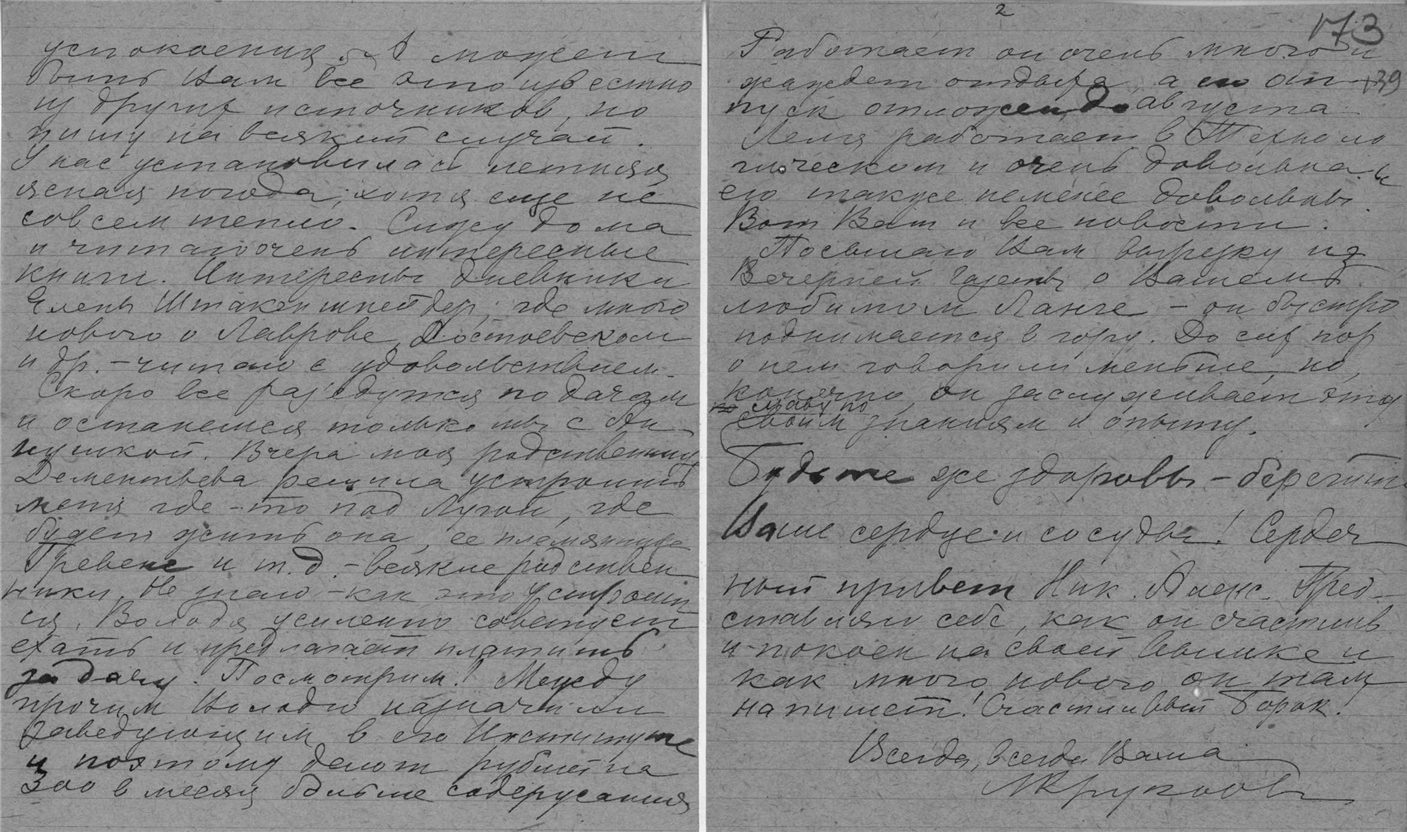 успокоения. А может
быть Вам все это известно
из других источников, но
пишу на всякий случай.
У нас установилась летняя
ясная погода, хотя еще не
совсем тепло. Сижу дома
и читаю очень интересные
книги. Интересны дневники
Елены Штакеншнейдер, где много
нового о Лаврове, Достоевском
и др. – читаю с удовольствием.
Скоро все разъедутся по дачам
и останемся только мы с Ан
нушкой. Вчера моя родственница
Дементьева решила устроить
меня где-то под Лугой, где
будет жить она, ее племянница
Гревенс и т.д. – всякие родствен
ники. Не знаю – как это устроит
ся. Володя усиленно советует
ехать и предлагает платить
за дачу. Посмотрим! Между
прочим Володю назначили
заведующим в его Институте
и поэтому дают рублей на
300 в месяц больше содержания
2
173
Работает он очень много и
жаждет отдыха, а от-
139
пуск отложен до августа.
Леля работает в Техноло
гическом и очень довольна, а
ею также не менее довольны.
Вот Вам и все новости.
Посылаю Вам вырезку из
Вечерней Газеты о Вашем
любимом Ланге – он быстро
поднимается в гору. До сих пор
о нем говорили меньше, но,
конечно, он заслуживает эту
славу по
своим знаниям и опыту.
Будьте же здоровы – берегите
Ваше сердце и сосуды! Сердеч
ный привет Ник. Алекс. Пред-
ставляю себе, как он счастлив
и покоен на своей
как много нового он там
напишет! Счастливый Борок!
Всегда, всегда Ваша